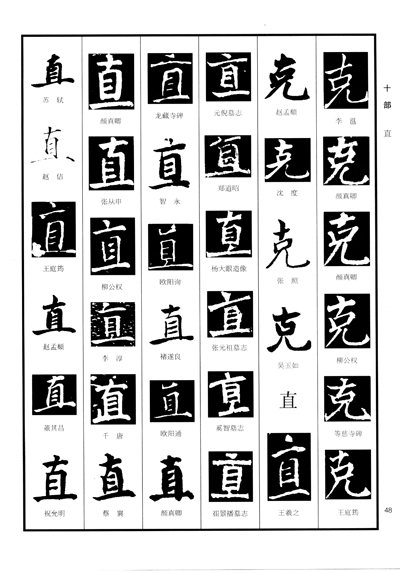 十部 直
48
克
李温
克
颜真卿
克
颜真卿
克
柳公权
克
等慈寺碑
克
王庭筠
克
赵孟頫
克
沈度
克
张照
克
吴玉如
直
直
王羲之
直
元倪墓志
直
郑道昭
直
杨大眼造像
直
张元祖墓志
直
奚智墓志
直
崔景播墓志
直
龙藏寺碑
直
智永
直
欧阳询
直
褚遂良
直
欧阳通
直
颜真卿
直
颜真卿
直
张从申
直
柳公权
直
李淳
直
千唐
直
蔡襄
直
苏轼
直
赵佶
直
王庭筠
直
赵孟頫
直
董其昌
直
祝允明